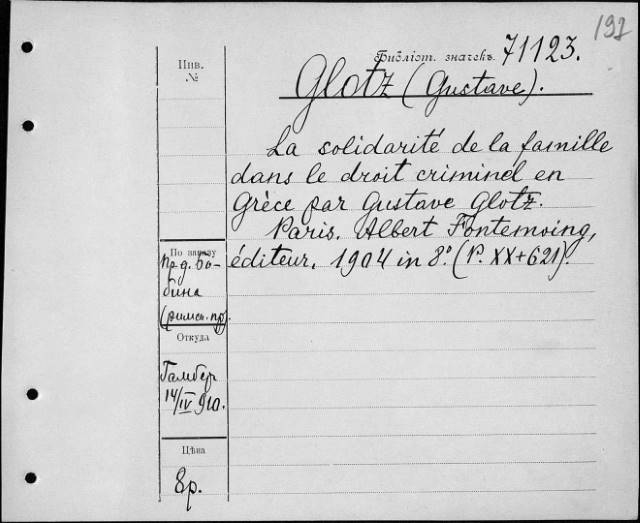 192
Библіот. значекъ. 71123.
Инв.
№
Glotz (Gustave).
La solidarité de la famille
dans le droit criminel en
Grèce par Gustave Glotz.
Paris. Albert Fontemoing,
éditeur. 1904 in 8°. (P. XX+621).
По заказу
пр. д. Бо-
бина
(римск. пр).
Откуда
Гамбер
14/IV 910.
Цѣна
8р.